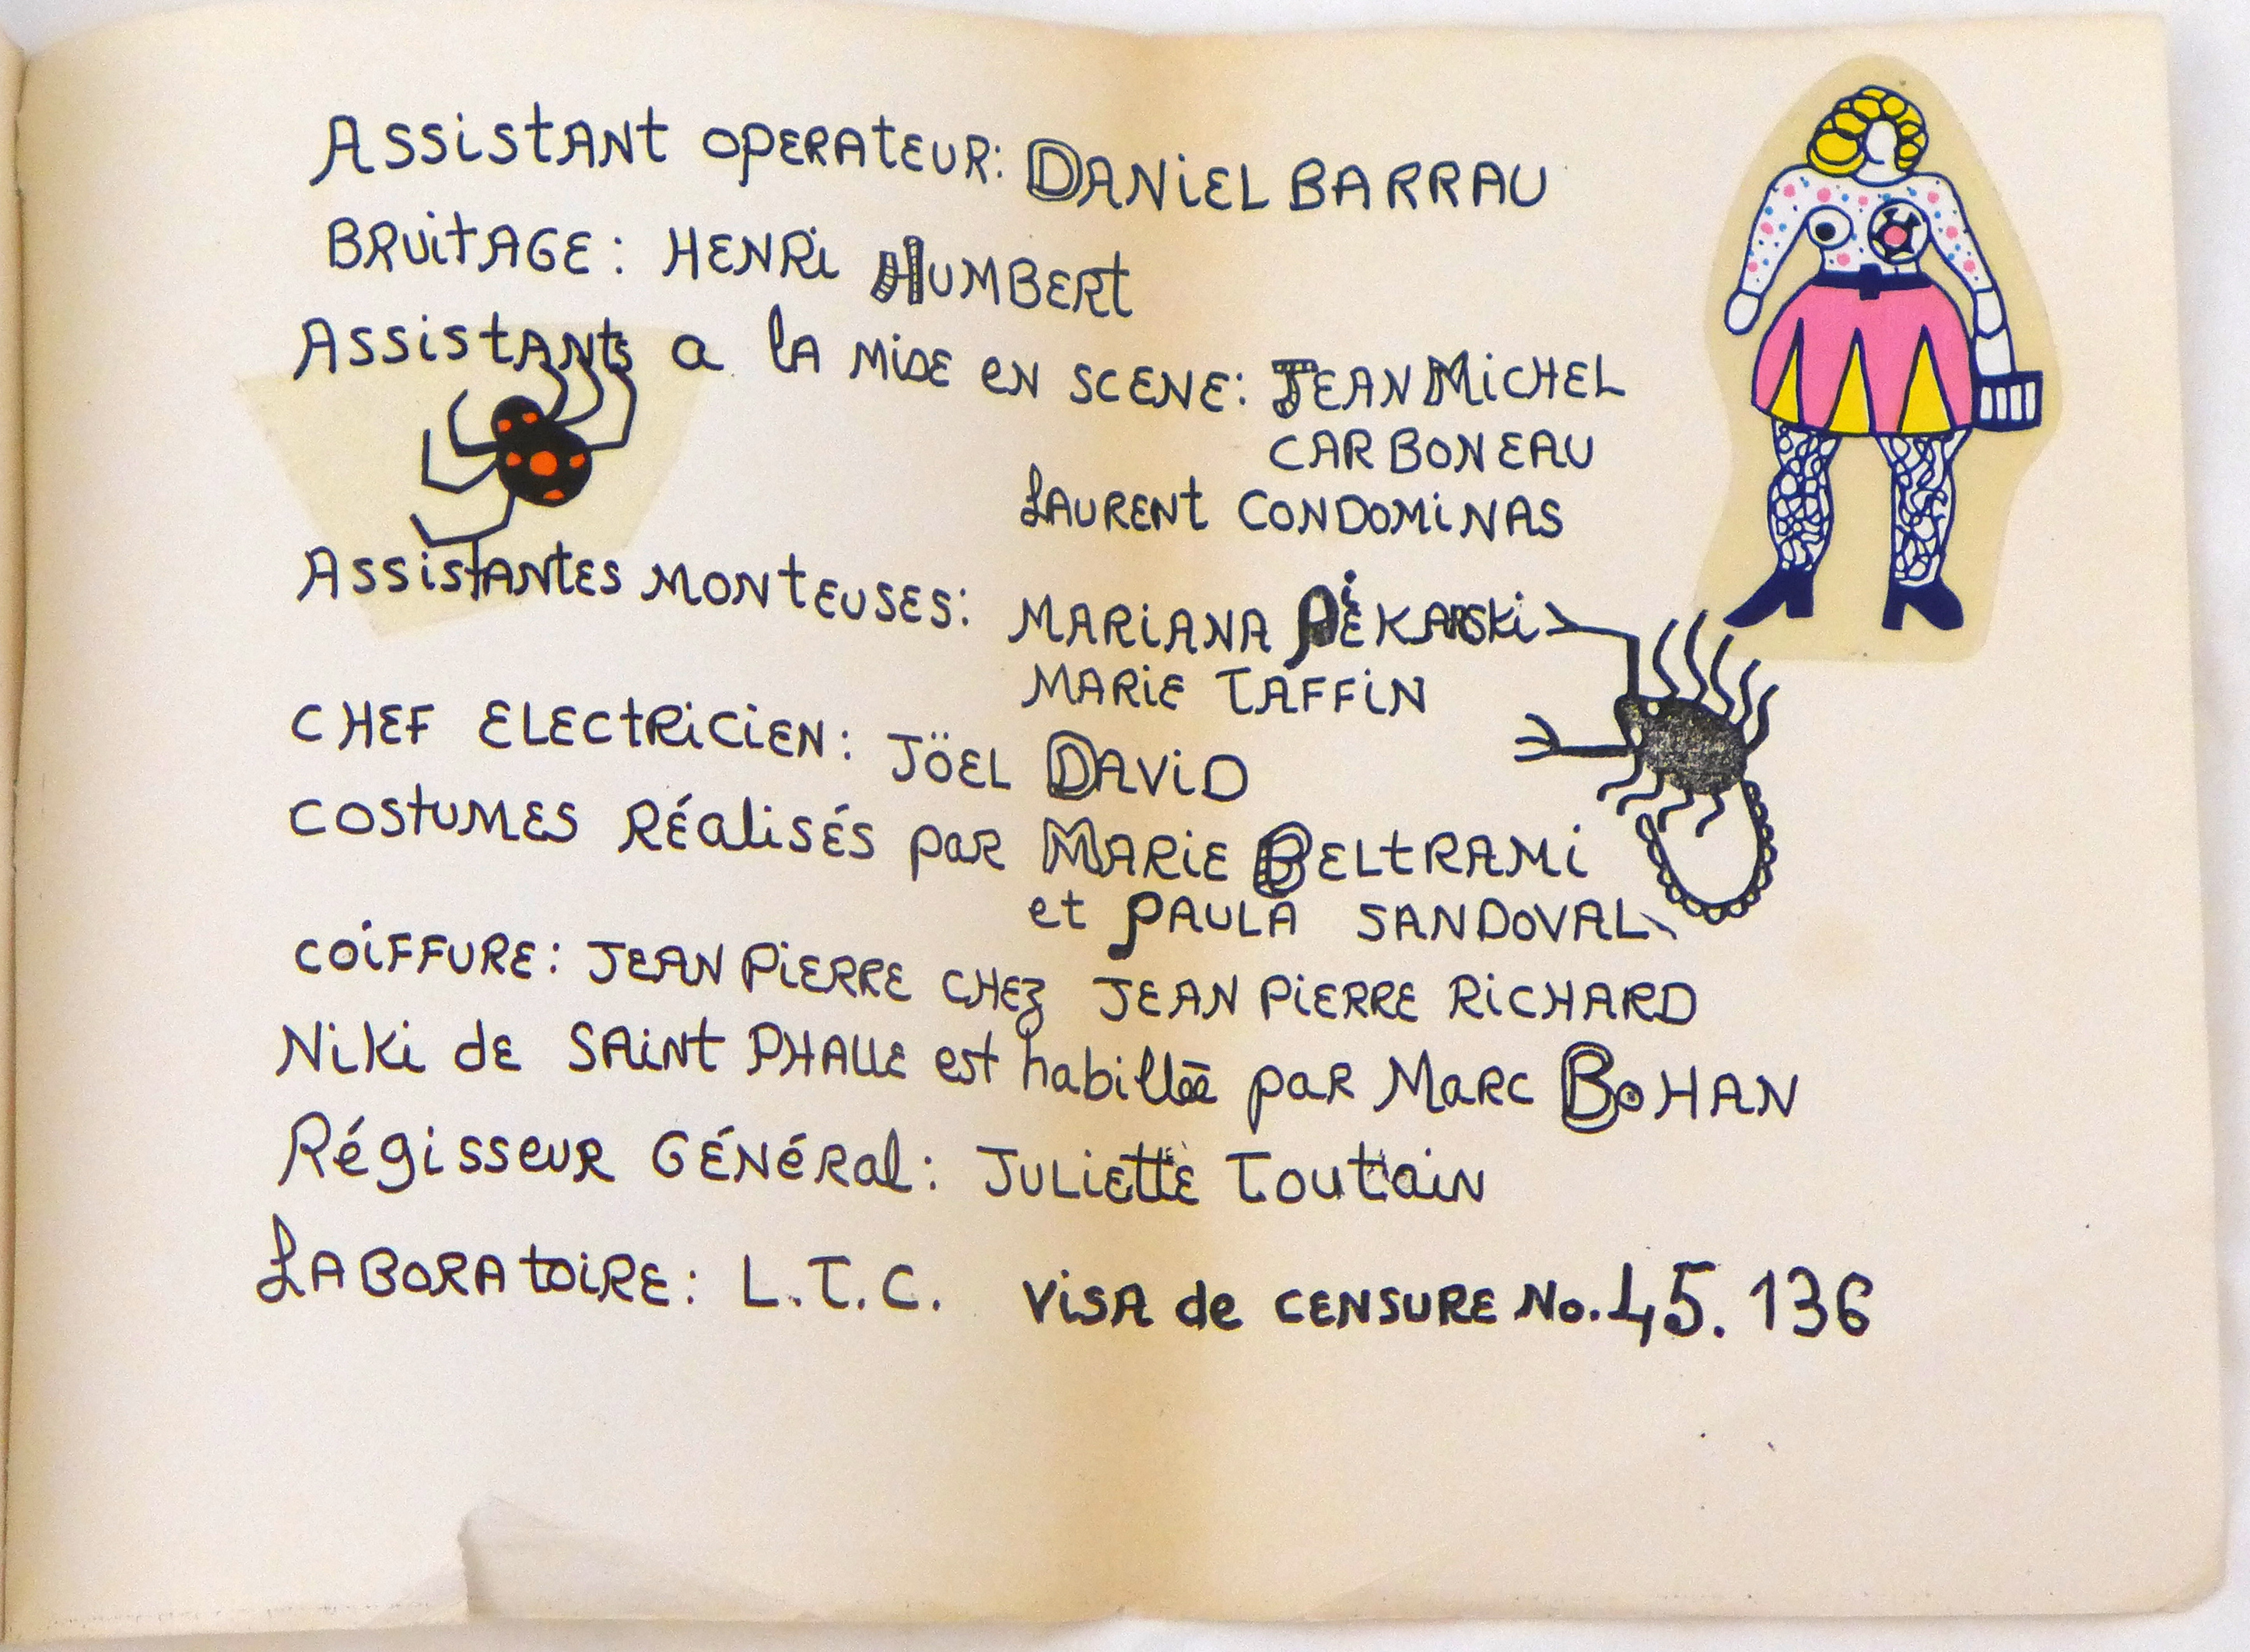 Assistant operateur: Daniel Barrau
Bruitage: Henri Humbert
Assistants a la mise en scene: Jean Michel
Carboneau
Laurent Condominas
Assistantes monteuses: Mariana Pékarski
Marie Taffin
Chef electricien: Jöel David
Costumes réalisés par Marie Beltrami
et Paula Sandoval
Coiffure: Jean Pierre chez Jean Pierre Richard
Niki de Saint Phalle est habillée par Marc Bohan
Régisseur Général: Juliette Toutain
Laboratoire: L.T.C. Visa de censure No. 45.136